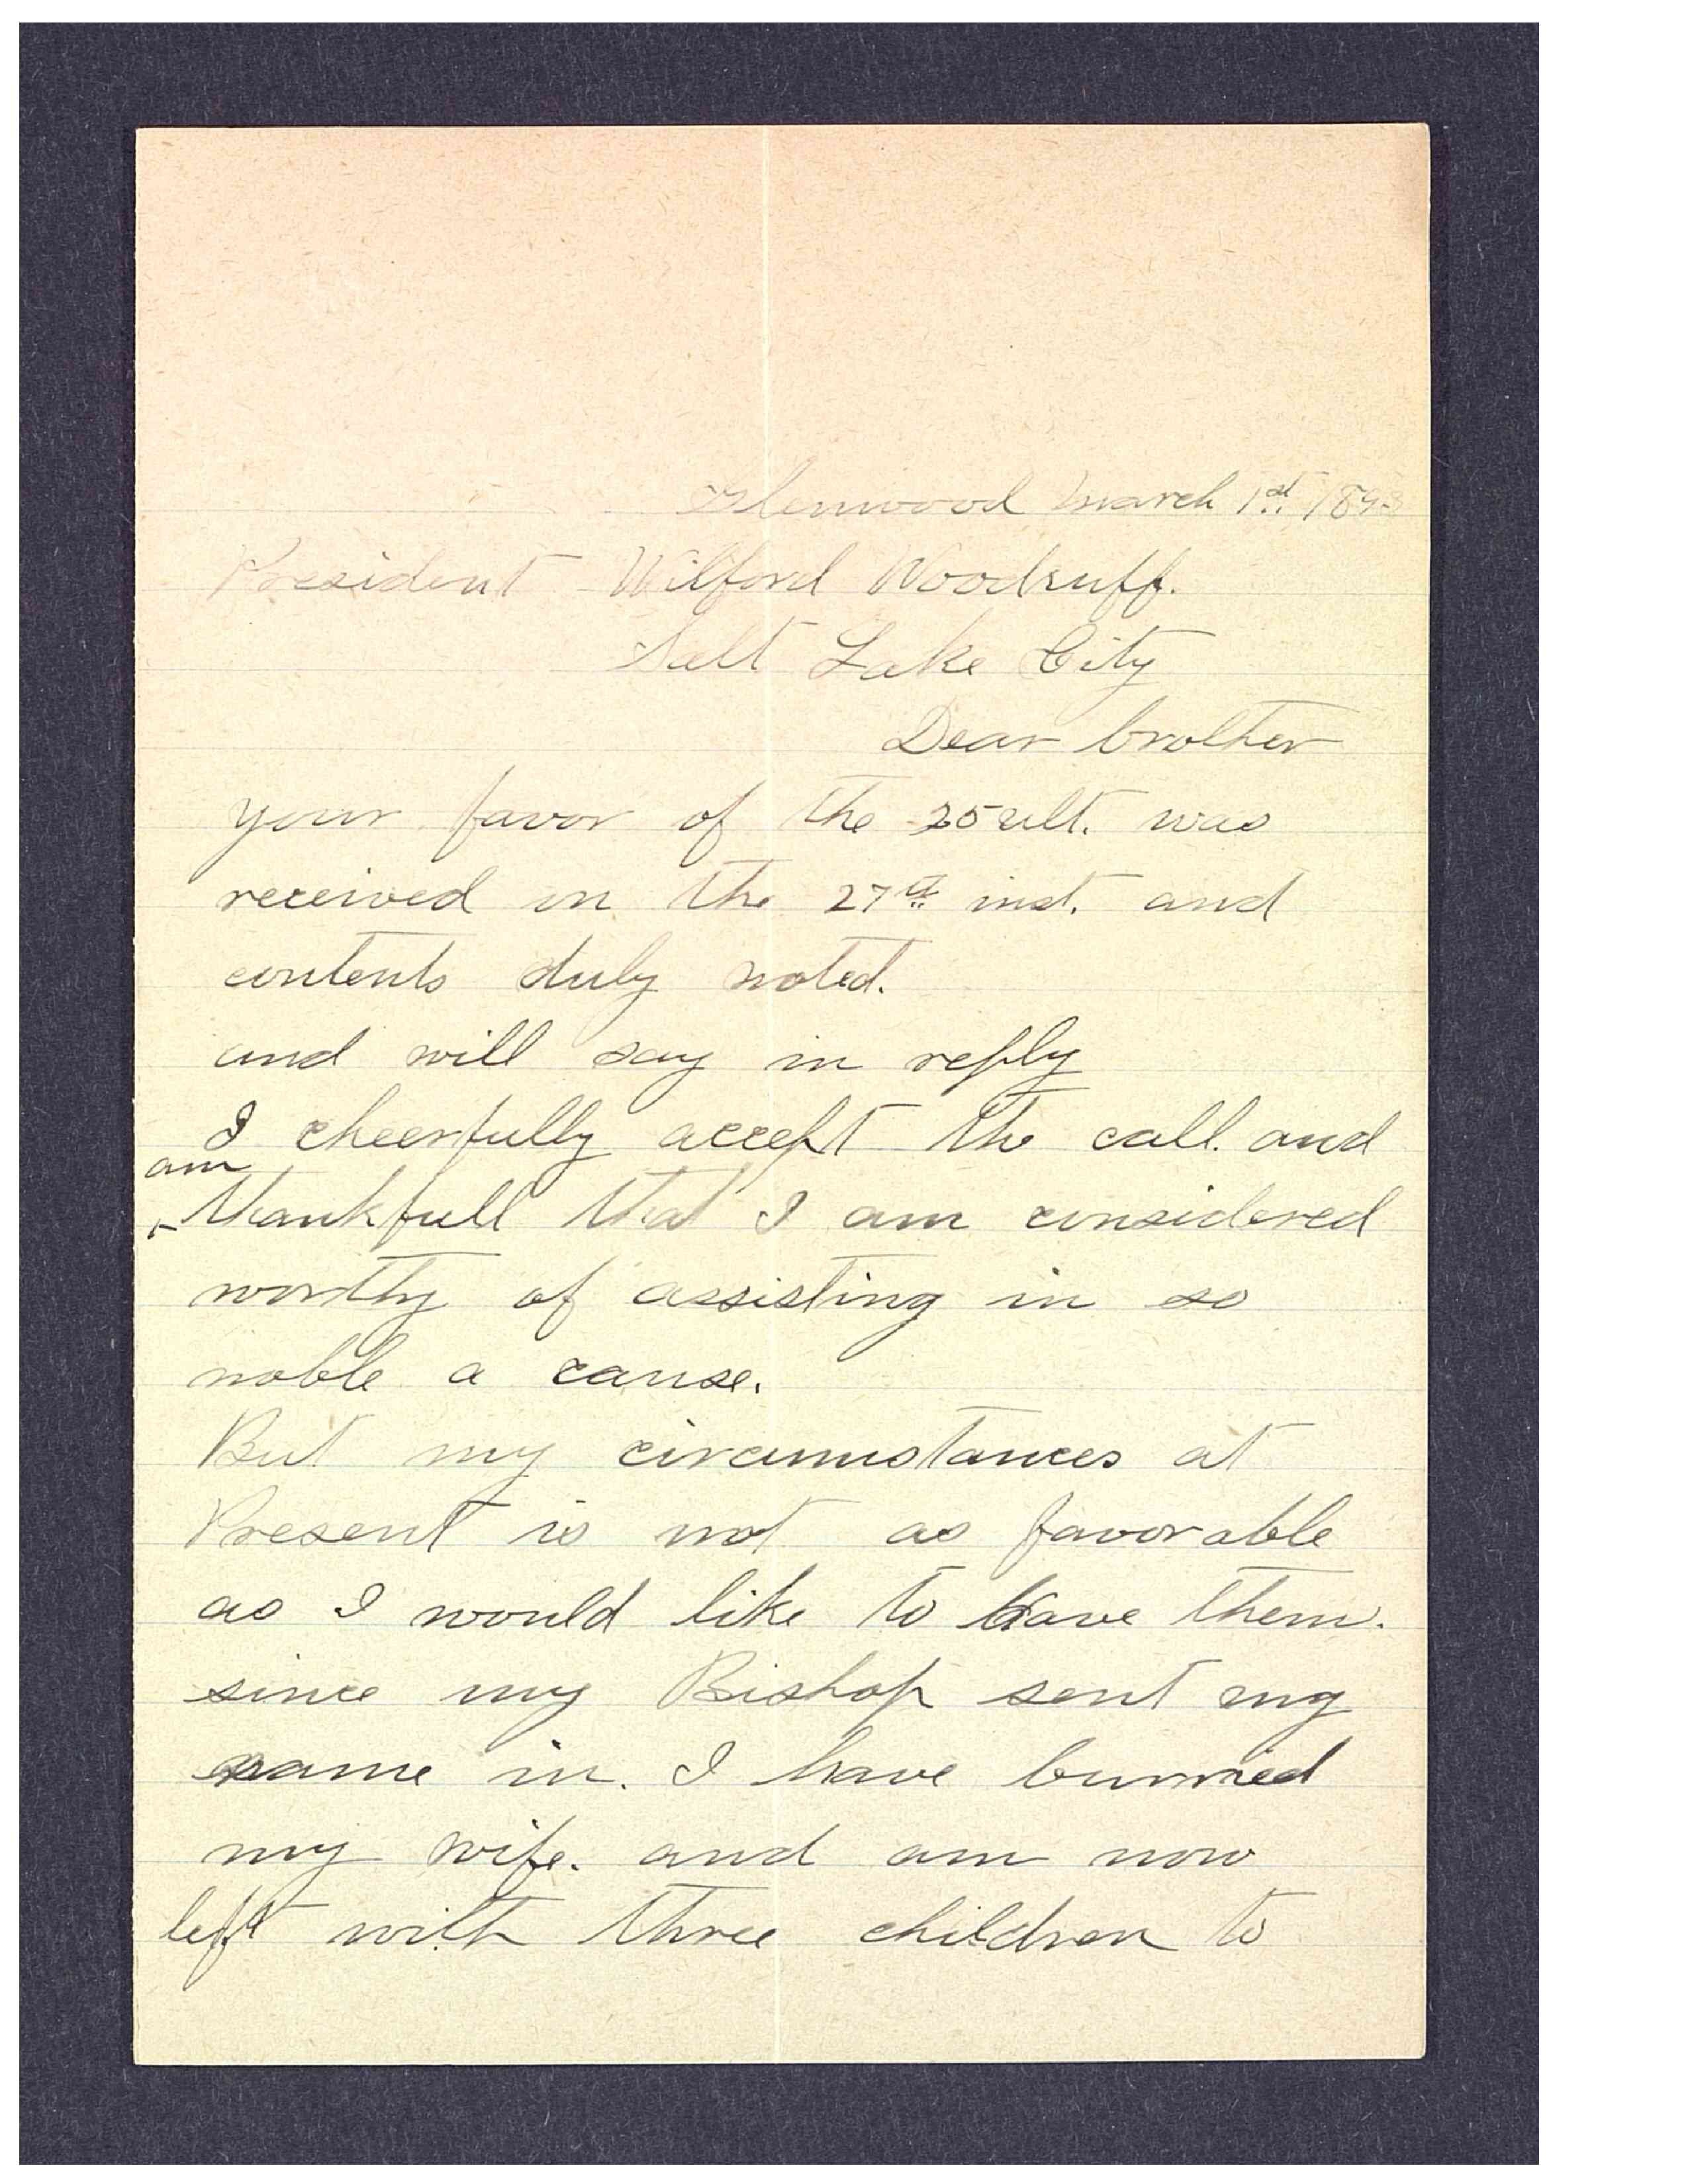 Glenwood March 1st 1893
President Wilford Woodruff.
Salt Lake City
Dear brother
your favor of the 25 ult. was
received on the 27th inst. and
contents duly noted.
and will say in reply
I cheerfully accept the call. and
am
thankfull that I am considered
worthy of assisting in so
noble a cause.
But my circumstances at
Present is not as favorable
as I would like to have them.
since my Bishop sent my
name in. I have burried
my wife. and am now
left with three children to